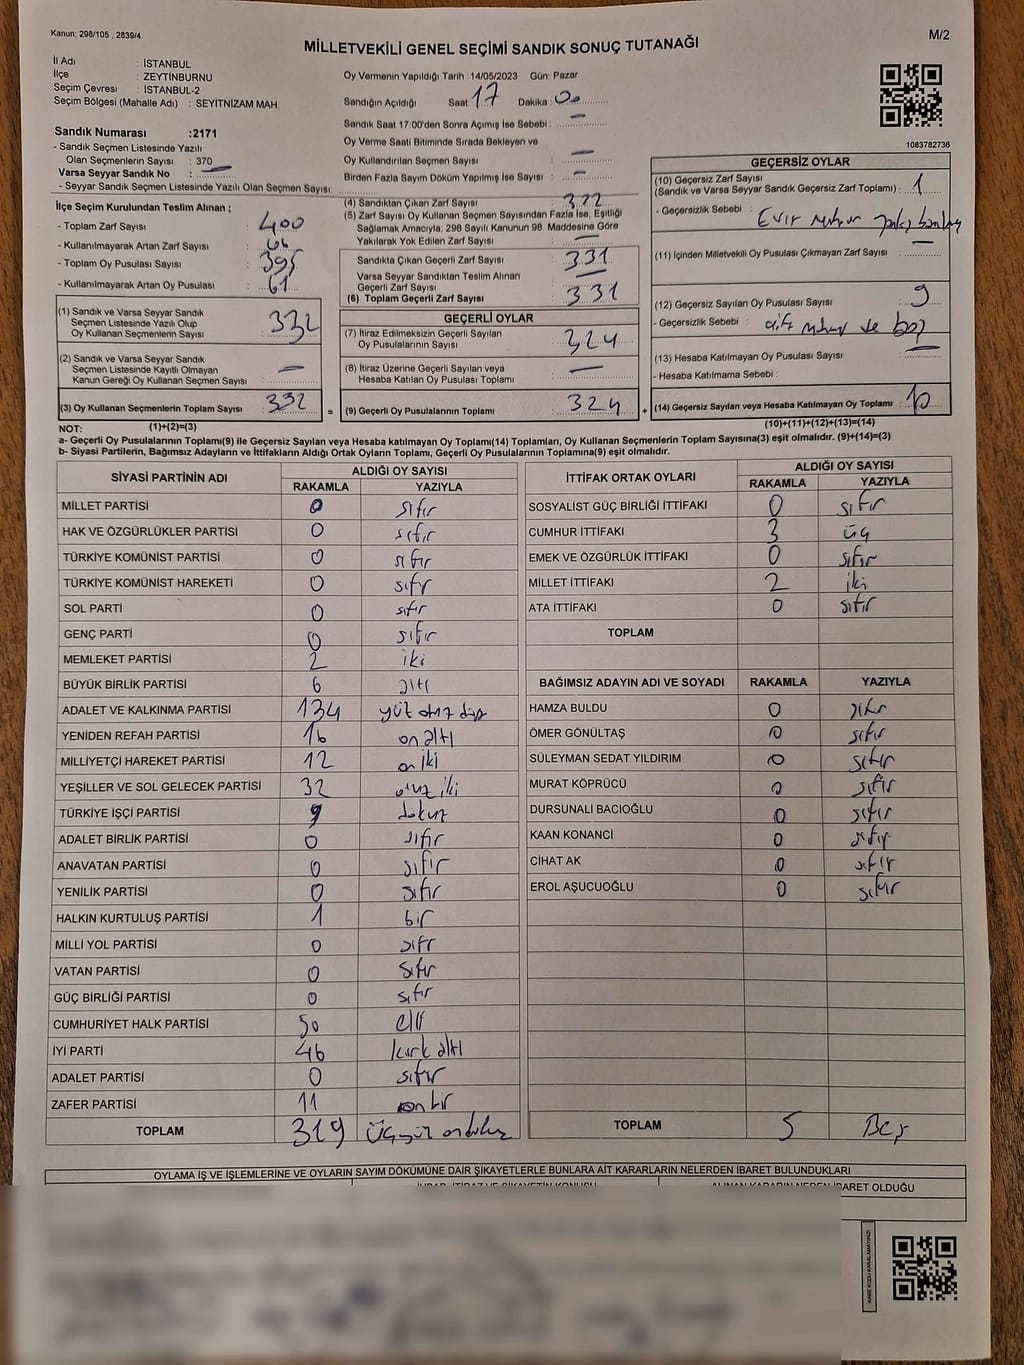 Kanun; 298/105 , 2839/4
M/2
MİLLETVEKİLİ GENEL SEÇİMİ SANDIK SONUÇ TUTANAĞI
İl Adı : İSTANBUL
İlçe : ZEYTİNBURNU
Seçim Çevresi : İSTANBUL-2
Seçim Bölgesi (Mahalle Adı) : SEYİTNİZAM MAH.
Sandık Numarası :2171
- Sandık Seçmen Listesinde Yazılı
Olan Seçmenlerin Sayısı : 370
Varsa Seyyar Sandık No : —
- Seyyar Sandık Seçmen Listesinde Yazılı Olan Seçmen Sayısı:
Oy Vermenin Yapıldığı Tarih :14/05/2023 Gün: Pazar
Sandığın Açıldığı Saat: 17 Dakika : 00
Sandık Saat 17:00'den Sonra Açımış İse Sebebi : —
Oy Verme Saati Bitiminde Sırada Bekleyen ve
Oy Kullandırılan Seçmen Sayısı : —
Birden Fazla Sayım Döküm Yapılmış İse Sayısı : —
1083782736
İlçe Seçim Kurulundan Teslim Alınan ;
- Toplam Zarf Sayısı : 400
- Kullanılmayarak Artan Zarf Sayısı : 66
- Toplam Oy Pusulası Sayısı : 395
- Kullanılmayarak Artan Oy Pusulası : 61
(1) Sandık ve Varsa Seyyar Sandık
Seçmen Listesinde Yazılı Olup
Oy Kullanan Seçmenlerin Sayısı : 332
(2) Sandık ve Varsa Seyyar Sandık
Seçmen Listesinde Kayıtlı Olmayan
Kanun Gereği Oy Kullanan Seçmen Sayısı : —
(3) Oy Kullanan Seçmenlerin Toplam Sayısı : 332
(4) Sandıktan Çıkan Zarf Sayısı :
(5) Zarf Sayısı Oy Kullanan Seçmen Sayısından Fazla İse, Eşitliği
Sağlamak Amacıyla; 298 Sayılı Kanunun 98. Maddesine Göre
Yakılarak Yok Edilen Zarf Sayısı :
Sandıkta Çıkan Geçerli Zarf Sayısı : 331
Varsa Seyyar Sandıktan Teslim Alınan
Geçerli Zarf Sayısı : —
(6) Toplam Geçerli Zarf Sayısı : 331
GEÇERLİ OYLAR
(7) İtiraz Edilmeksizin Geçerli Sayılan
Oy Pusulalarının Sayısı : 324
(8) İtiraz Üzerine Geçerli Sayılan veya
Hesaba Katılan Oy Pusulası Toplamı : —
= (9) Geçerli Oy Pusulalarının Toplamı : 324
GEÇERSİZ OYLAR
(10) Geçersiz Zarf Sayısı
(Sandık ve Varsa Seyyar Sandık Geçersiz Zarf Toplamı) : 1
- Geçersizlik Sebebi : Evir Mühür
(11) İçinden Milletvekili Oy Pusulası Çıkmayan Zarf Sayısı : —
(12) Geçersiz Sayılan Oy Pusulası Sayısı : 9
- Geçersizlik Sebebi : çift mühür ve boş
(13) Hesaba Katılmayan Oy Pusulası Sayısı : —
- Hesaba Katılmama Sebebi :
+ (14) Geçersiz Sayılan veya Hesaba Katılmayan Oy Toplamı : 10
NOT: (1)+(2)=(3)
(10)+(11)+(12)+(13)=(14)
a- Geçerli Oy Pusulalarının Toplamı(9) ile Geçersiz Sayılan veya Hesaba katılmayan Oy Toplamı(14) Toplamları, Oy Kullanan Seçmenlerin Toplam Sayısına(3) eşit olmalıdır. (9)+(14)=(3)
b- Siyasi Partilerin, Bağımsız Adayların ve İttifakların Aldığı Ortak Oyların Toplamı, Geçerli Oy Pusulalarının Toplamına(9) eşit olmalıdır.
SİYASİ PARTİNİN ADI ALDIĞI OY SAYISI
RAKAMLA YAZIYLA
MİLLET PARTİSİ 0 sıfır
HAK VE ÖZGÜRLÜKLER PARTİSİ 0 sıfır
TÜRKİYE KOMÜNİST PARTİSİ 0 sıfır
TÜRKİYE KOMÜNİST HAREKETİ 0 sıfır
SOL PARTİ 0 sıfır
GENÇ PARTİ 0 sıfır
MEMLEKET PARTİSİ 2 iki
BÜYÜK BİRLİK PARTİSİ 6 altı
ADALET VE KALKINMA PARTİSİ 134 yüz otuz dört
YENİDEN REFAH PARTİSİ 16 on altı
MİLLİYETÇİ HAREKET PARTİSİ 12 on iki
YEŞİLLER VE SOL GELECEK PARTİSİ 32 otuz iki
TÜRKİYE İŞÇİ PARTİSİ 9 dokuz
ADALET BİRLİK PARTİSİ 0 sıfır
ANAVATAN PARTİSİ 0 sıfır
YENİLİK PARTİSİ 0 sıfır
HALKIN KURTULUŞ PARTİSİ 1 bir
MİLLİ YOL PARTİSİ 0 sıfır
VATAN PARTİSİ 0 sıfır
GÜÇ BİRLİĞİ PARTİSİ 0 sıfır
CUMHURİYET HALK PARTİSİ 50 elli
İYİ PARTİ 46 kırk altı
ADALET PARTİSİ 0 sıfır
ZAFER PARTİSİ 11 on bir
TOPLAM 319 üçyüz ondokuz
İTTİFAK ORTAK OYLARI ALDIĞI OY SAYISI
RAKAMLA YAZIYLA
SOSYALİST GÜÇ BİRLİĞİ İTTİFAKI 0 sıfır
CUMHUR İTTİFAKI 3 üç
EMEK VE ÖZGÜRLÜK İTTİFAKI 0 sıfır
MİLLET İTTİFAKI 2 iki
ATA İTTİFAKI 0 sıfır
TOPLAM
BAĞIMSIZ ADAYIN ADI VE SOYADI RAKAMLA YAZIYLA
HAMZA BULDU 0 sıfır
ÖMER GÖNÜLTAŞ 0 sıfır
SÜLEYMAN SEDAT YILDIRIM 0 sıfır
MURAT KÖPRÜCÜ 0 sıfır
DURSUNALİ BACIOĞLU 0 sıfır
KAAN KONANCİ 0 sıfır
CİHAT AK 0 sıfır
EROL AŞUCUOĞLU 0 sıfır
TOPLAM 5 Beş
OYLAMA İŞ VE İŞLEMLERİNE VE OYLARIN SAYIM DÖKÜMÜNE DAİR ŞİKAYETLERLE BUNLARA AİT KARARLARIN NELERDEN İBARET BULUNDUKLARI